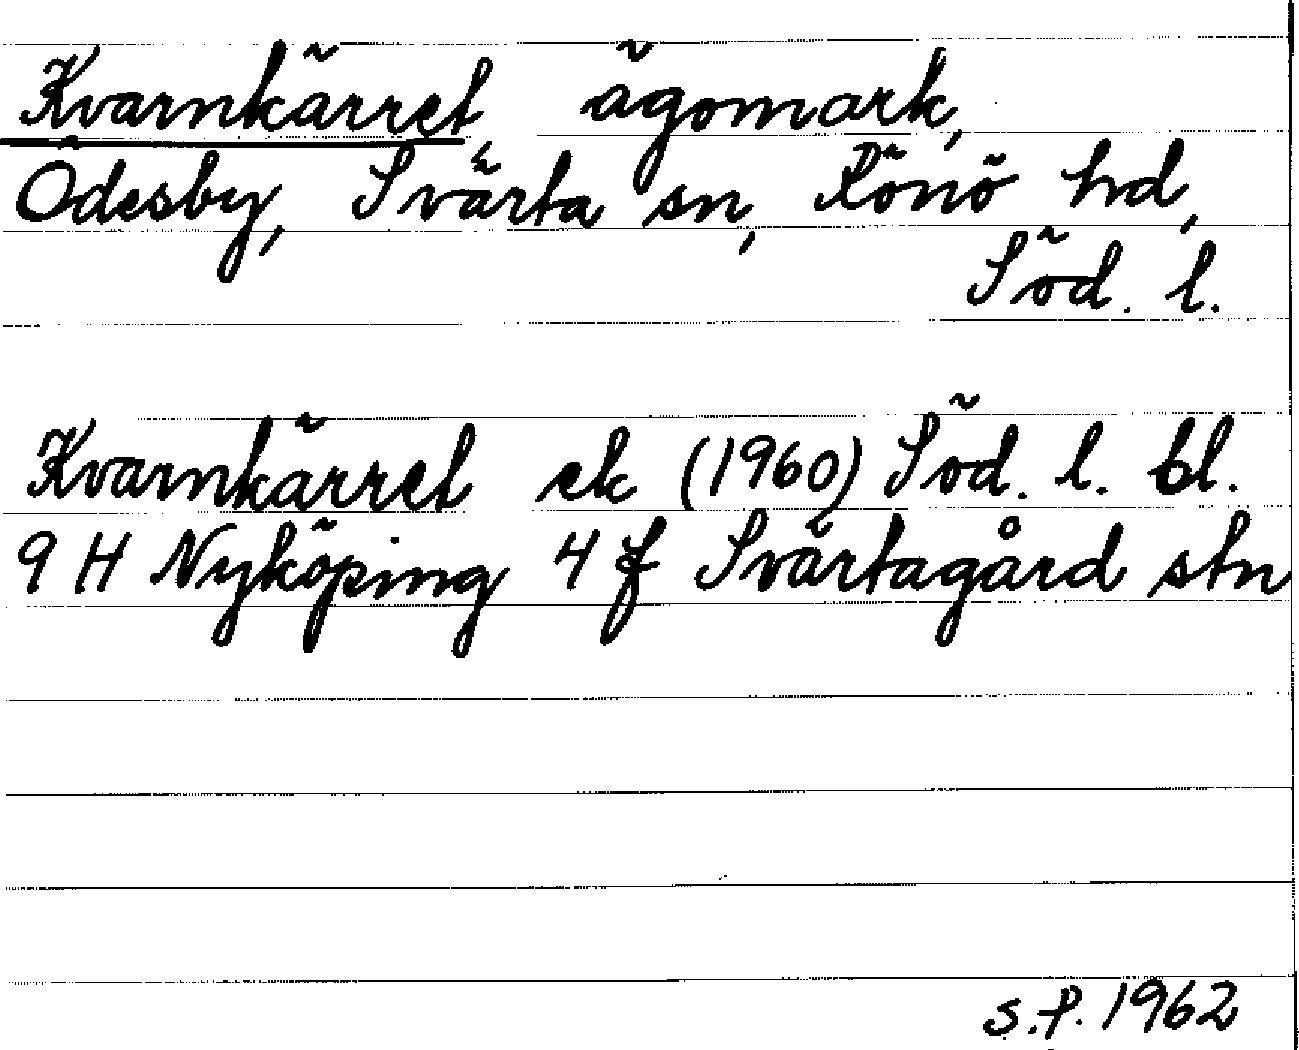 Kvarnkärret ägomark,
Ödesby, Svärta sn, Rönö hd,
Söd. l.
Kvarnkärret ek (1960) Söd. l. bl.
9 H Nyköping 4 f Svärtagård stn
S.P. 1962